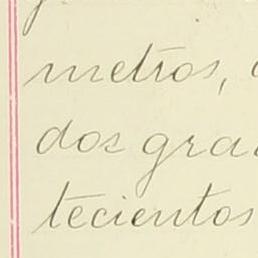 metros,
dos gra
tecientos